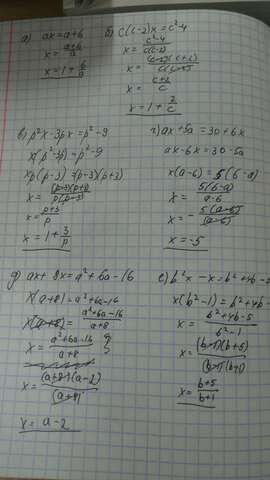 а) ax=a+6
x=(a+6)/a
x=1+6/a
б) c(c-2)x=c²-4
x=(c²-4)/(c(c-2))
x=((c-2)(c+2))/(c(c-2))
x=(c+2)/c
x=1+2/c
в) p²x-3px=p²-9
x(p²-3p)=p²-9
xp(p-3)=(p-3)(p+3)
x=((p-3)(p+3))/(p(p-3))
x=(p+3)/p
x=1+3/p
г) ax+5a=30+6x
ax-6x=30-5a
x(a-6)=5(6-a)
x=5(6-a)/(a-6)
x=-5(a-6)/(a-6)
x=-5
д) ax+8x=a²+6a-16
x(a+8)=a²+6a-16
x(a+8)=(a²+6a-16)/(a+8)
x=(a²+6a-16)/(a+8)
x=((a+8)(a-2))/(a+8)
x=a-2
е) b²x-x=b²+4b-
x(b²-1)=b²+4b-
x=(b²+4b-5)/(b²-1)
x=((b-1)(b+5))/((b-1)(b+1))
x=(b+5)/(b+1)